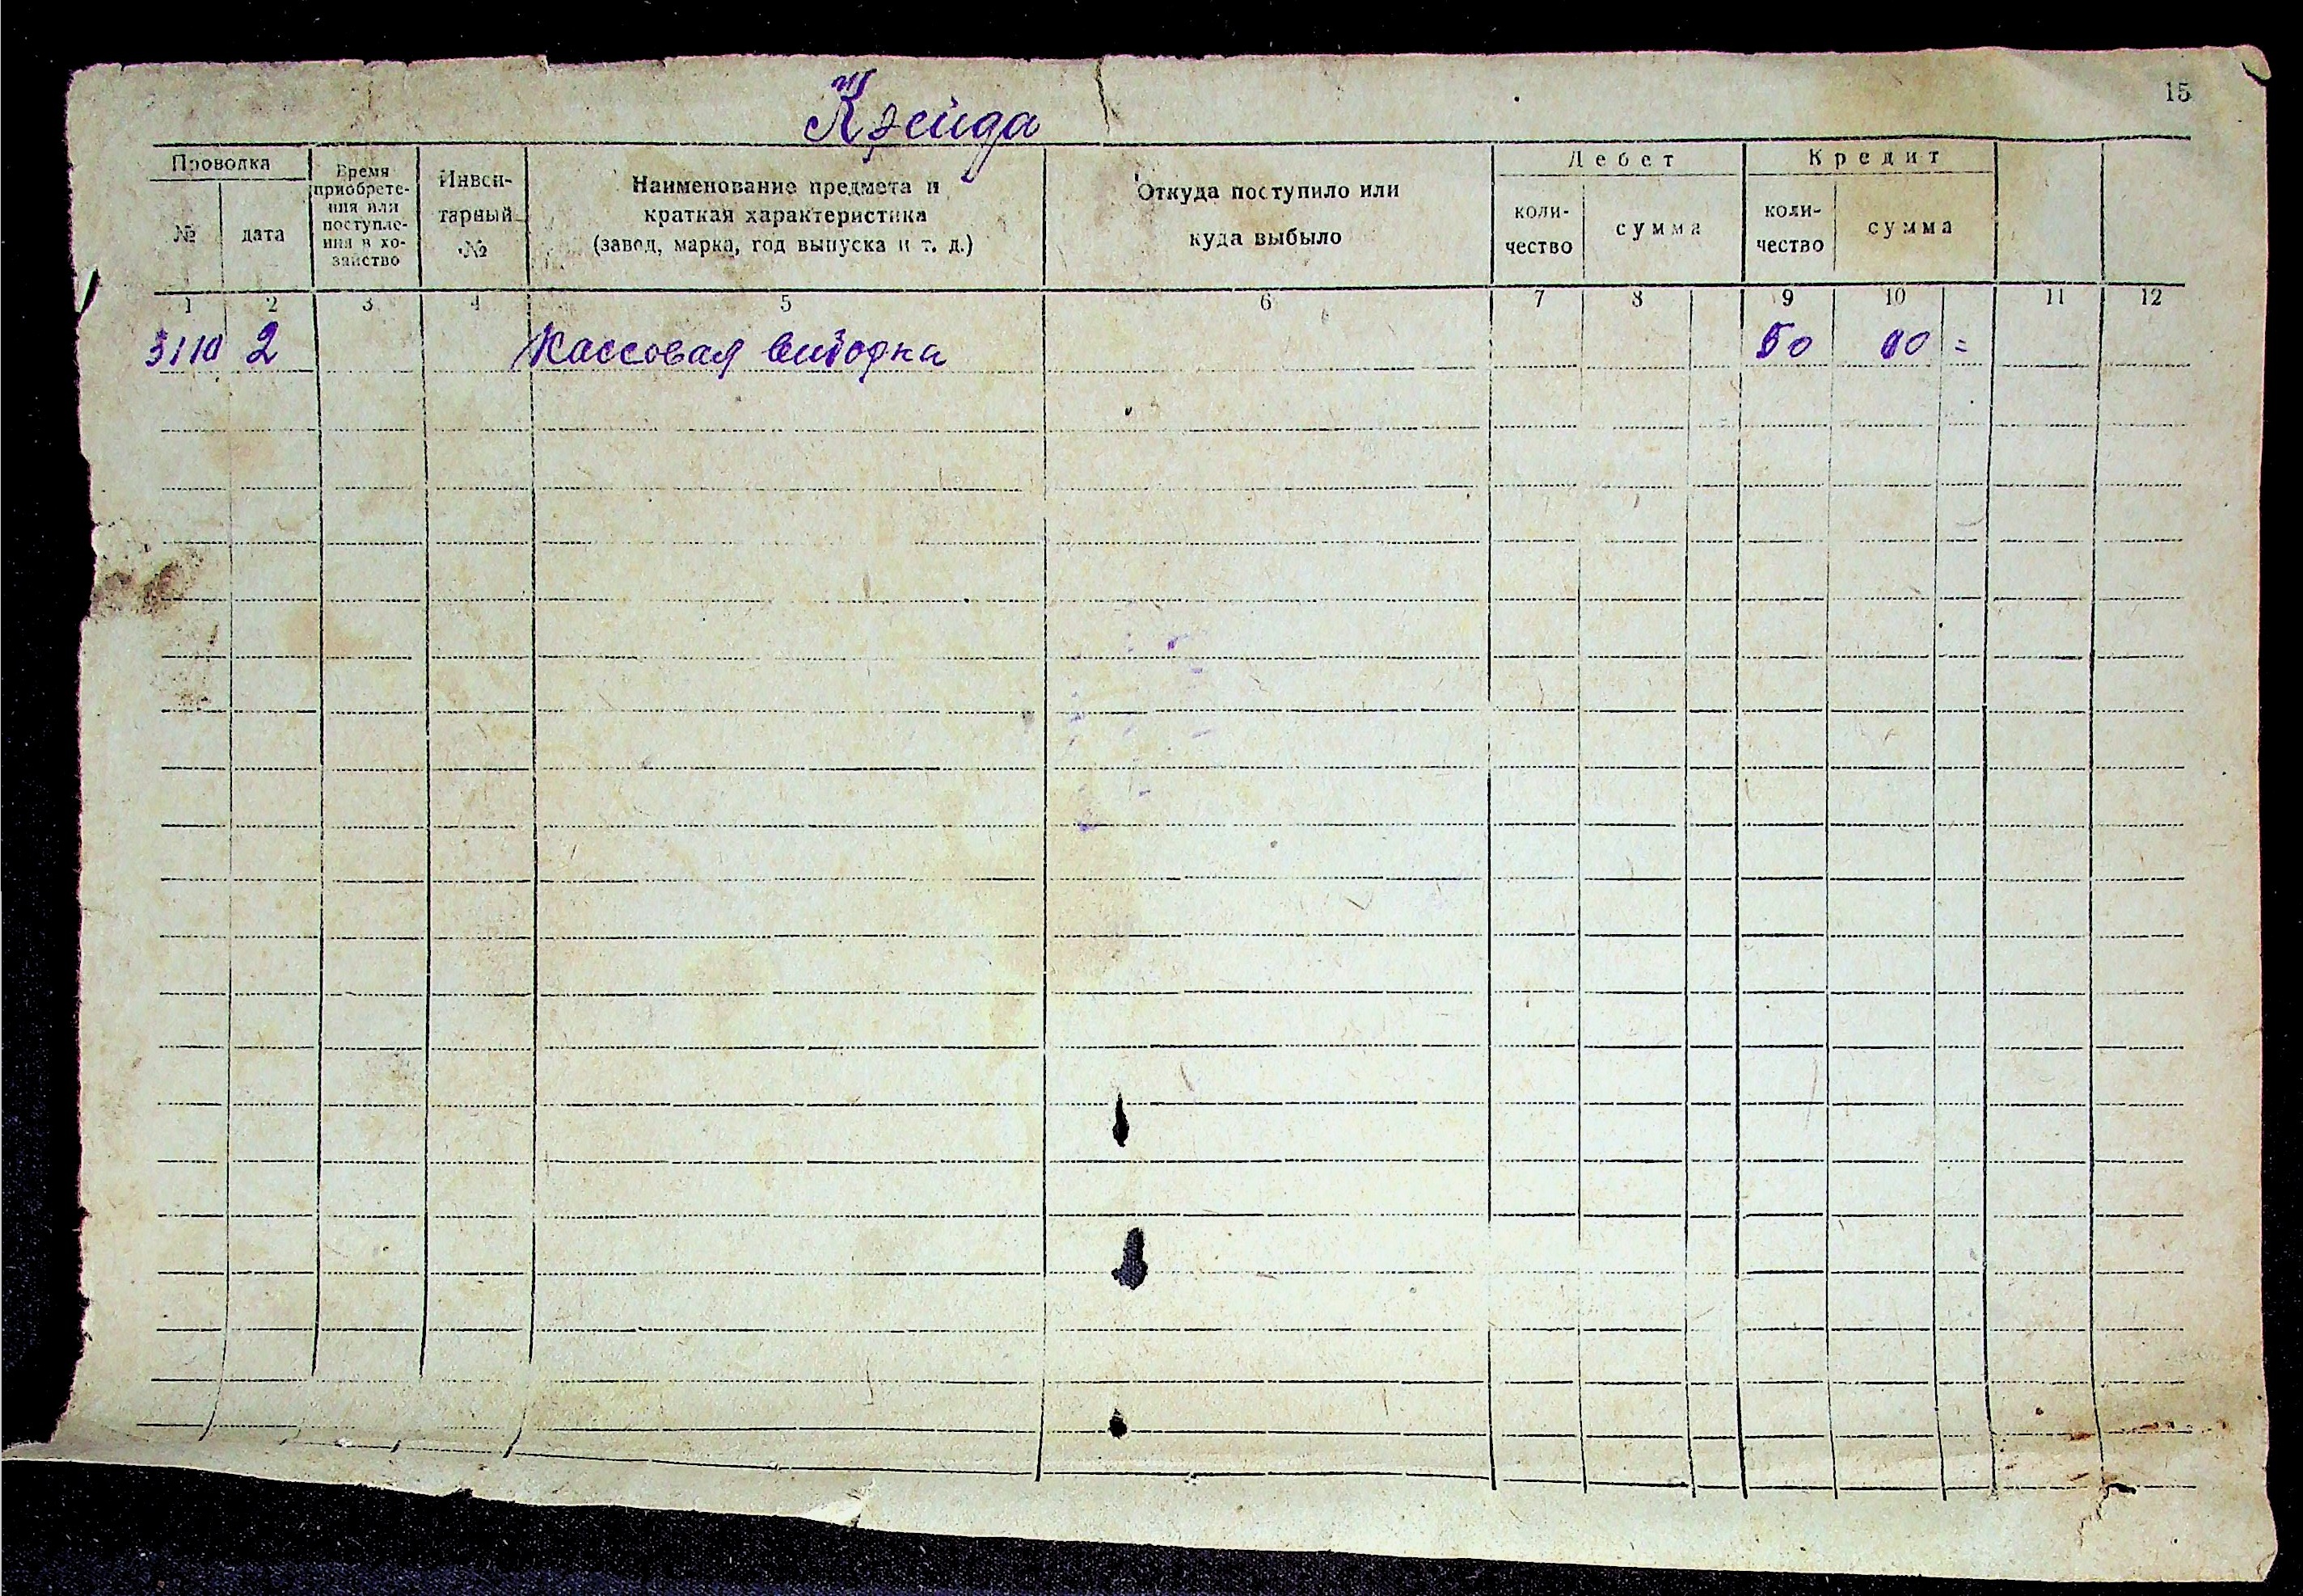 15
Крейда
Проводка
Время приобрете-ния или поступле-ния в хо-зяйство
Инвен-тарный №
Наименование предмета и краткая характеристика (завод, марка, год выпуска и т. д.)
Откуда поступило или куда выбыло
Дебет
Кредит
№ дата
коли-чество сумма
коли-чество сумма
1 2 3 4 5 6 7 8 9 10 11 12
2 Кассовая выборка 50